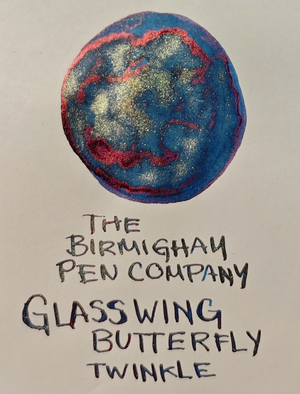 THE
BIRMIGHAM
PEN COMPANY
GLASSWING
BUTTERFLY
TWINKLE